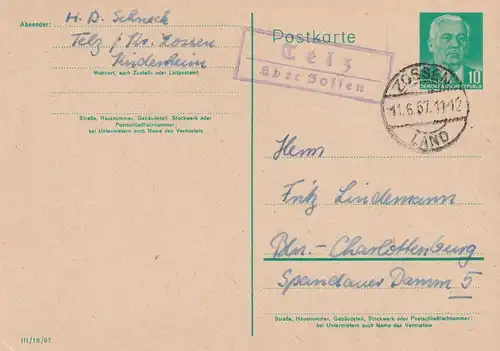 Absender: H. D. Schnack
Telz / Kr. Zossen
Lindenheim
Wohnort, auch Zustell- oder Leitpostamt
Straße, Hausnummer, Gebäudeteil, Stockwerk oder
Postschließfachnummer;
bei Untermietern auch Name des Vermieters
III/18/97
Postkarte
Telz
über Zossen
10
DEUTSCHE DEMOKRATISCHE REPUBLIK
ZOSSEN
11.6.57.11-12
LAND
Herrn
Fritz Lindemann
Bln.-Charlottenburg
Spandauer Damm 5
Straße, Hausnummer, Gebäudeteil, Stockwerk oder Postschließfachnummer;
bei Untermietern auch Name des Vermieters